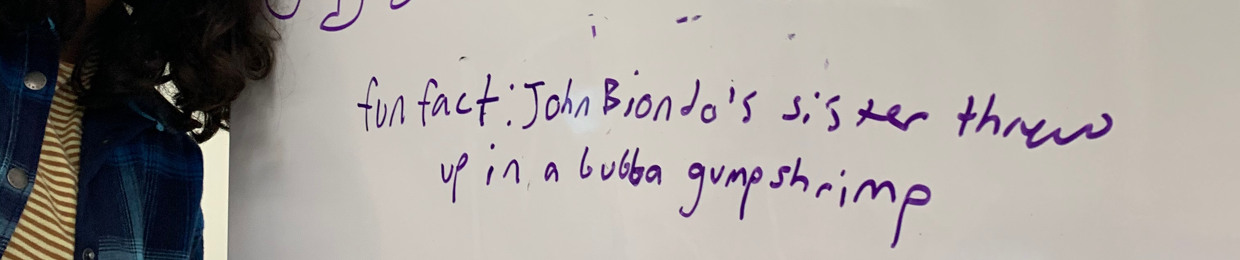 fun fact: John Biondo's sister threw
up in a bubba gump shrimp